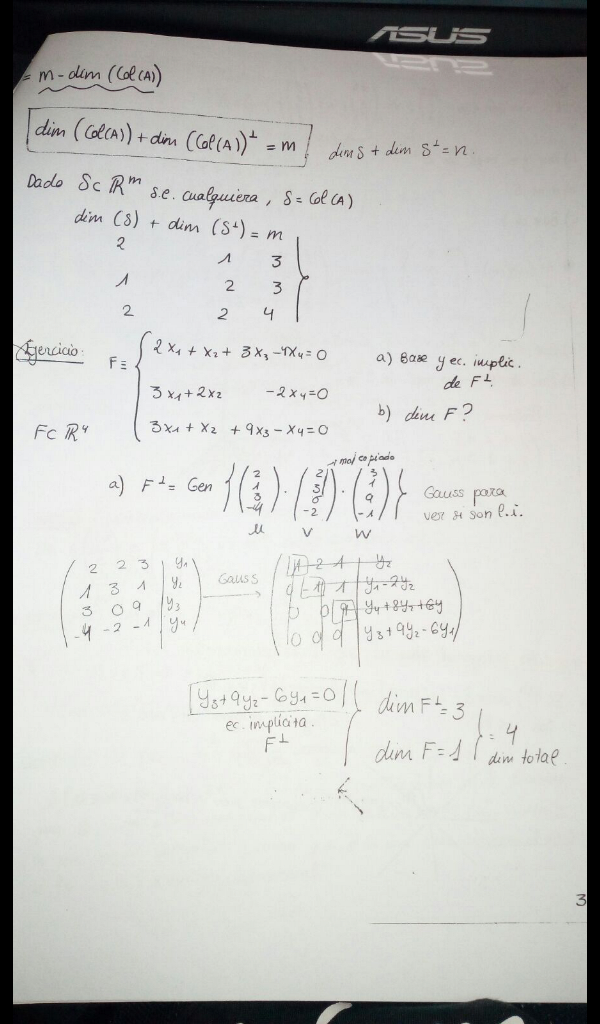 ASUS
= m - dim (Col(A))
dim (Col(A)) + dim (Col(A))⊥ = m
dim S + dim S⊥ = n.
Dado S ⊂ ℝᵐ s.e. cualquiera, S = Col(A)
dim (S) + dim (S⊥) = m
2 1 3
1 2 3
2 2 4
Ejercicio:
F ≡ { 2x₁ + x₂ + 3x₃ - 4x₄ = 0
3x₁ + 2x₂ - 2x₄ = 0
3x₁ + x₂ + 9x₃ - x₄ = 0
F ⊂ ℝ⁴
a) Base y ec. implic.
de F⊥.
b) dim F?
mal copiado
a) F⊥ = Gen { (2 1 3 -4) , (2 3 0 -2) , (3 1 9 -1) }
u v w
Gauss para
ver si son l.i.
2 2 3 | y₁
1 3 1 | y₂
3 0 9 | y₃
-4 -2 -1 | y₄
Gauss
1 2 1 y₂
0 -1 1 y₁-2y₂
0 0 9 y₄+8y₂+6y
0 0 0 y₃+9y₂-6y₁
y₃ + 9y₂ - 6y₁ = 0
ec. implícita.
F⊥
dim F⊥ = 3
dim F = 1
= 4
dim total.
3